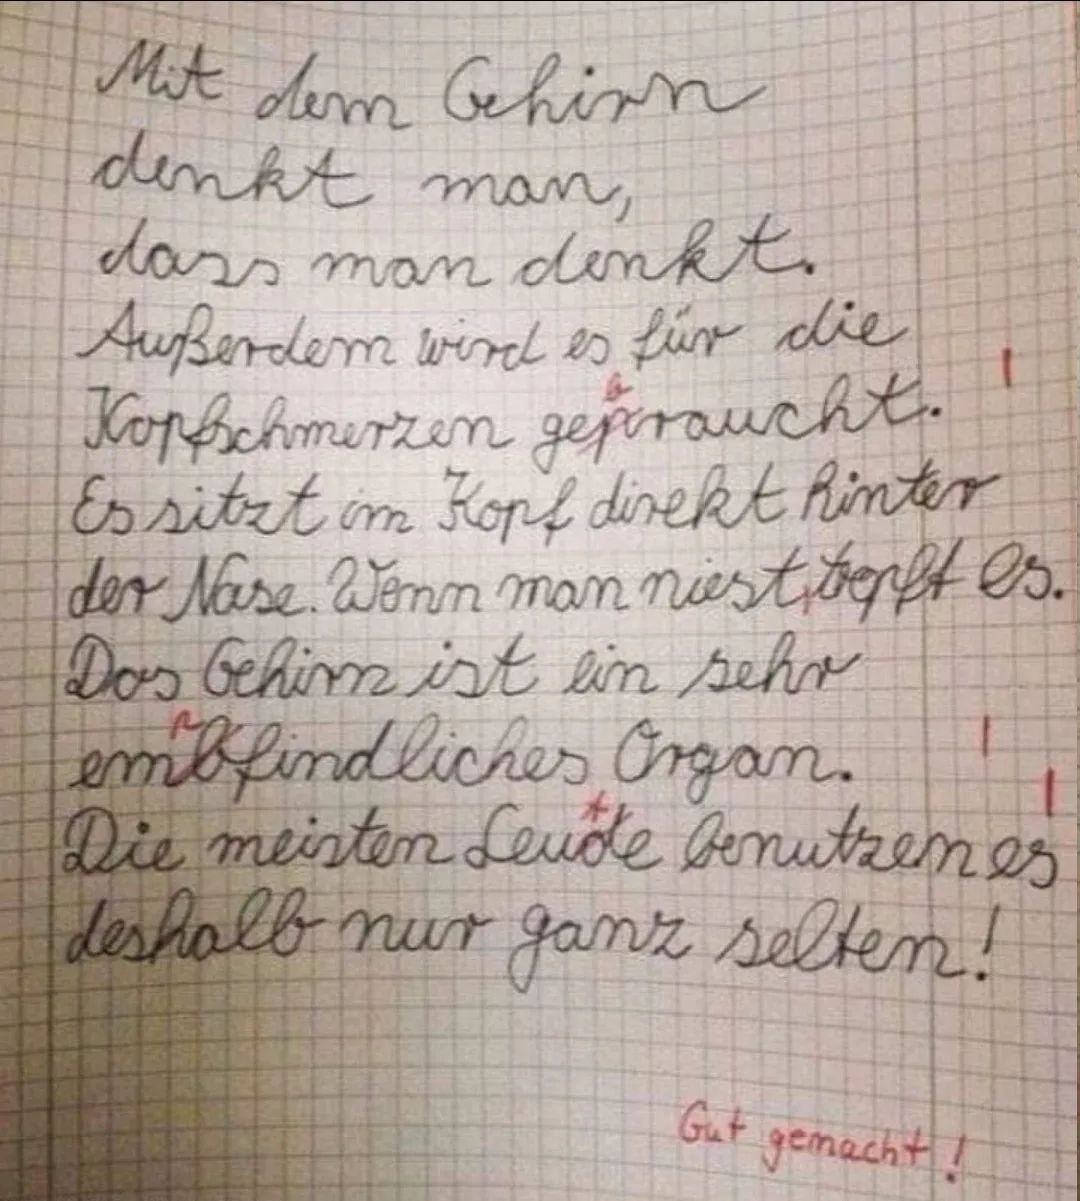 Mit dem Gehirn
denkt man,
dass man denkt.
Außerdem wird es für die
b
Kopfschmerzen gepraucht.
Es sitzt im Kopf direkt hinter
der Nase. Wenn man niest, tropft es.
Das Gehirn ist ein sehr
p
embfindliches Organ.
t
Die meisten Leude benutzen es
deshalb nur ganz selten!
Gut gemacht!